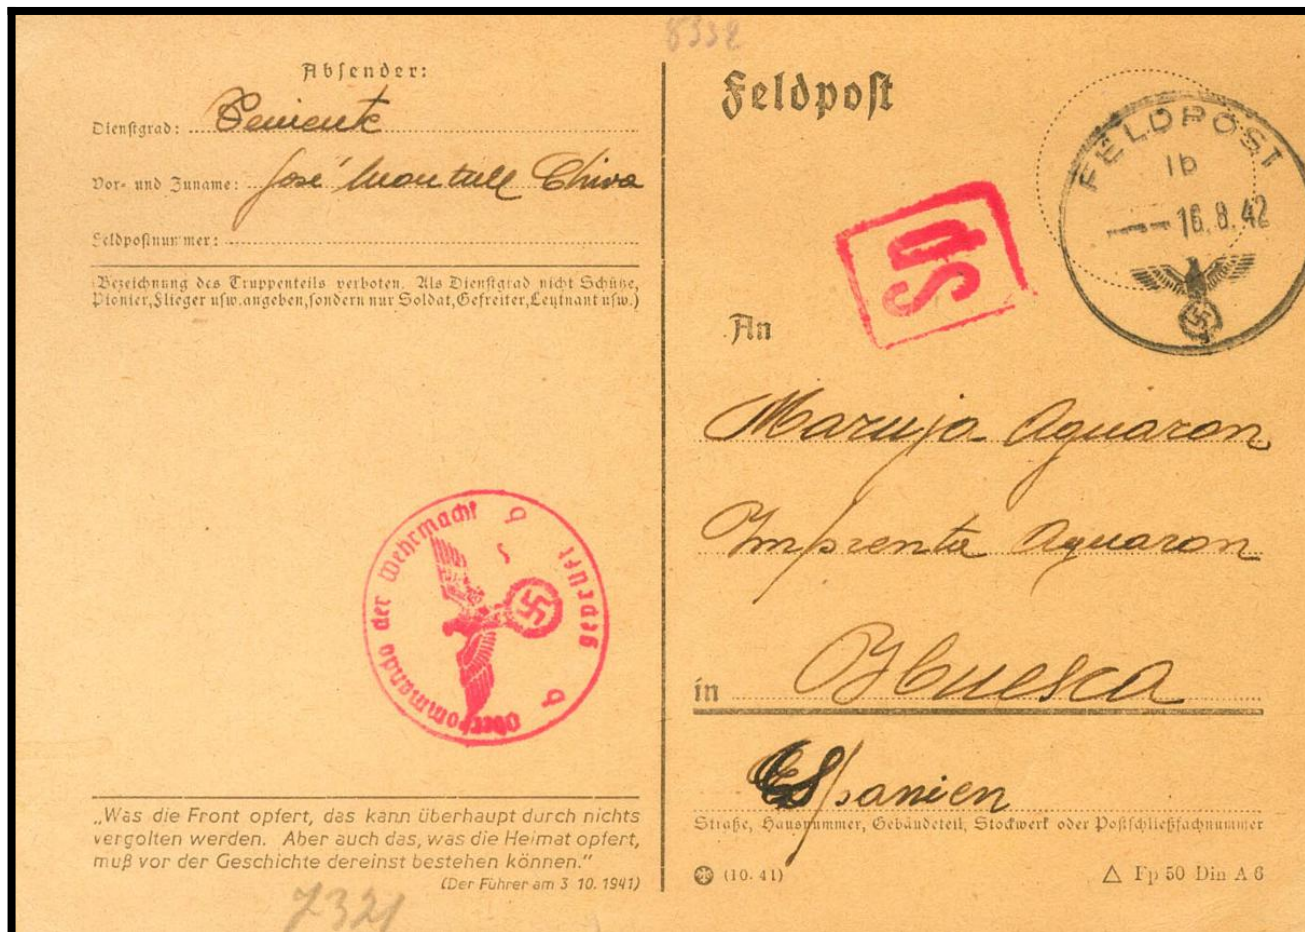 8332
Absender:
Dienstgrad: Teniente
Vor- und Zuname: José Chiva
Feldpostnummer:
(Bezeichnung des Truppenteils verboten. Als Dienstgrad nicht Schütze,
Pionier, Flieger usw. angeben, sondern nur Soldat, Gefreiter, Leutnant usw.)
Oberkommando der Wehrmacht
geprüft
b b
„Was die Front opfert, das kann überhaupt durch nichts
vergolten werden. Aber auch das, was die Heimat opfert,
muß vor der Geschichte dereinst bestehen können.”
(Der Führer am 3 10. 1941)
7321
Feldpost
FELDPOST
1b
16.8.42
SD
An
Maruja Aguaron
Imprenta Aguaron
in Huesca
Spanien
Straße, Hausnummer, Gebäudeteil, Stockwerk oder Postschließfachnummer
(10. 41)
Fp 50 Din A 6